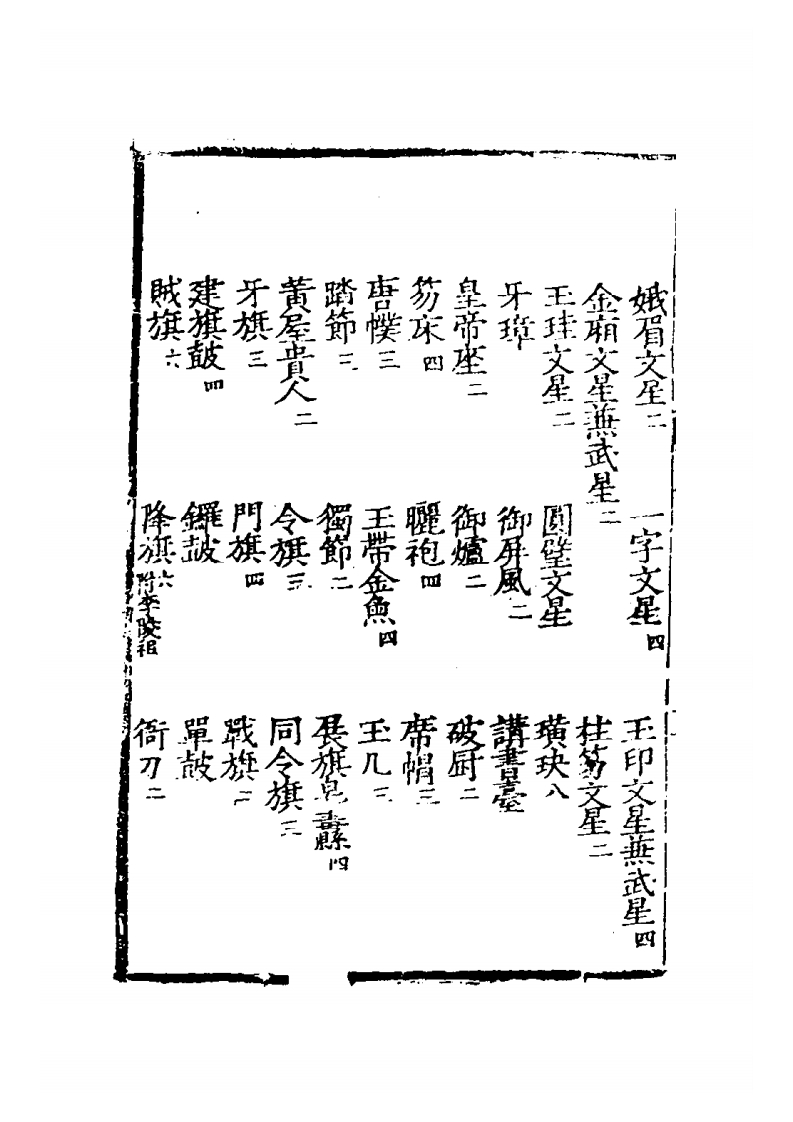 娥眉文星二　一字文星四　玉印文星兼武星四
金廂文星兼武星二　柱笏文星二
玉珪文星二　圓璧文星　璜玦八
牙璋　御屏風二　講書臺
皇帝座二　御爐二　破厨二
笏床四　曬袍四　席帽三
唐幞三　玉帶金魚四　玉几三
踏節二　獨節二　展旗皂纛四
黃屋貴人二　令旗三　同令旗三
牙旗三　門旗四　戰旗二
建旗鼓四　鑼鼓　單鼓
賊旗六　降旗六附李陵祖　衙刀二